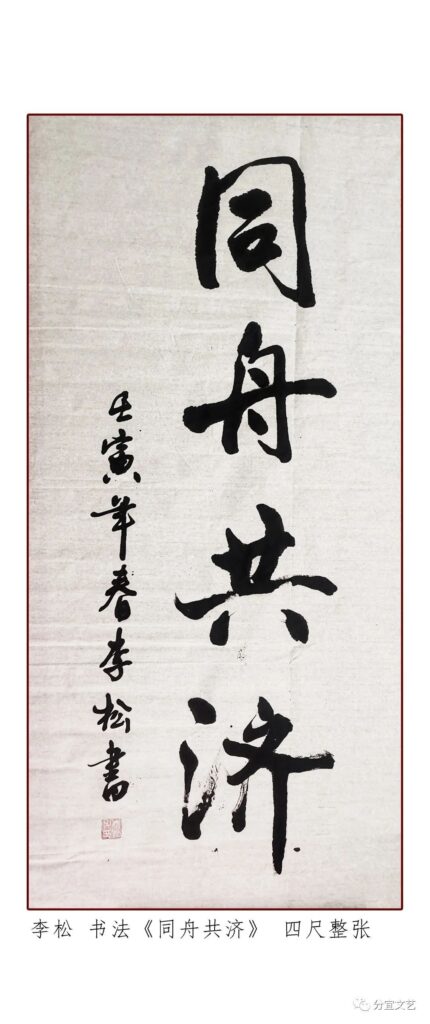 同舟共济
壬寅年春李松書
李松 书法《同舟共济》 四尺整张
分宜文艺